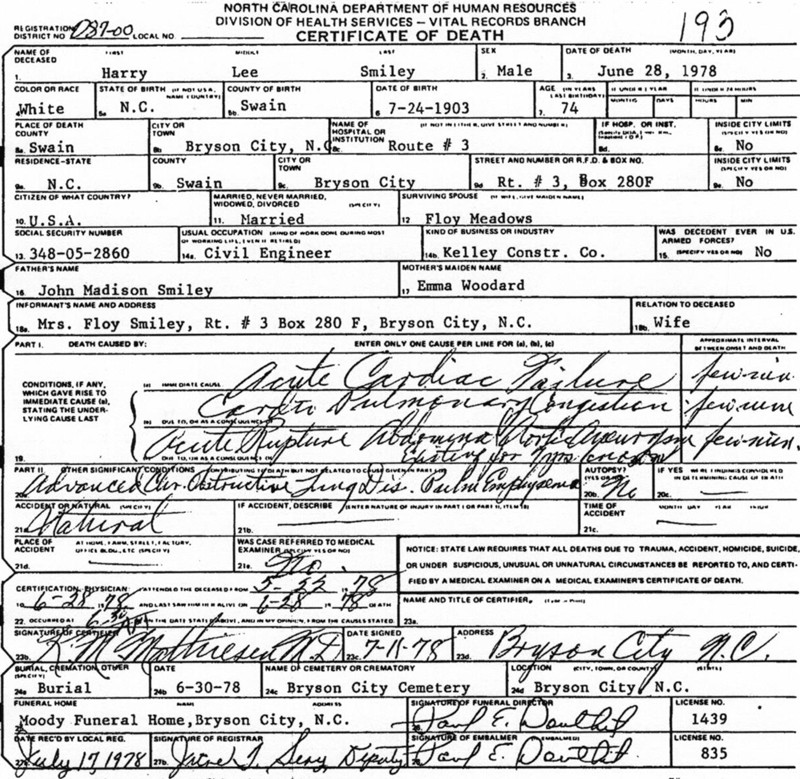 NORTH CAROLINA DEPARTMENT OF HUMAN RESOURCES
DIVISION OF HEALTH SERVICES – VITAL RECORDS BRANCH
CERTIFICATE OF DEATH
193
REGISTRATION DISTRICT NO. D87-00 LOCAL NO.
NAME OF DECEASED FIRST MIDDLE LAST SEX DATE OF DEATH (MONTH, DAY, YEAR)
1. Harry Lee Smiley 2. Male 3. June 28, 1978
COLOR OR RACE STATE OF BIRTH (IF NOT U.S.A., NAME COUNTRY) COUNTY OF BIRTH DATE OF BIRTH AGE (IN YEARS LAST BIRTHDAY) IF UNDER 1 YEAR MONTHS DAYS IF UNDER 24 HOURS HOURS MIN
4. White 5a N.C. 5b. Swain 6 7-24-1903 7. 74
PLACE OF DEATH COUNTY CITY OR TOWN NAME OF HOSPITAL OR INSTITUTION (IF NOT IN EITHER, GIVE STREET AND NUMBER) IF HOSP. OR INST. INSIDE CITY LIMITS (SPECIFY YES OR NO)
8a. Swain 8b Bryson City, N.C 8c. Route # 3 8d 8e. No
RESIDENCE-STATE COUNTY CITY OR TOWN STREET AND NUMBER OR R.F.D. & BOX NO. INSIDE CITY LIMITS (SPECIFY YES OR NO)
9a. N.C. 9b. Swain 9c. Bryson City 9d Rt. # 3, Box 280F 9e. No
CITIZEN OF WHAT COUNTRY? MARRIED, NEVER MARRIED, WIDOWED, DIVORCED (SPECIFY) SURVIVING SPOUSE (IF WIFE, GIVE MAIDEN NAME)
10. U.S.A. 11. Married 12 Floy Meadows
SOCIAL SECURITY NUMBER USUAL OCCUPATION (KIND OF WORK DONE DURING MOST OF WORKING LIFE, EVEN IF RETIRED) KIND OF BUSINESS OR INDUSTRY WAS DECEDENT EVER IN U.S. ARMED FORCES? (SPECIFY YES OR NO)
13. 348-05-2860 14a. Civil Engineer 14b. Kelley Constr. Co. 15. No
FATHER'S NAME MOTHER'S MAIDEN NAME
16. John Madison Smiley 17 Emma Woodard
INFORMANT'S NAME AND ADDRESS RELATION TO DECEASED
18a. Mrs. Floy Smiley, Rt. # 3 Box 280 F, Bryson City, N.C. 18b. Wife
PART I. DEATH CAUSED BY: ENTER ONLY ONE CAUSE PER LINE FOR (a), (b), (c) APPROXIMATE INTERVAL BETWEEN ONSET AND DEATH
CONDITIONS, IF ANY, WHICH GAVE RISE TO IMMEDIATE CAUSE (a), STATING THE UNDERLYING CAUSE LAST
(a) IMMEDIATE CAUSE Acute Cardiac Failure few min
(b) DUE TO, OR AS A CONSEQUENCE OF Cardio Pulmonary Congestion few min
19. (c) DUE TO, OR AS A CONSEQUENCE OF Acute Rupture Abdominal Aortic Aneurysm few min.
Existing for
PART II OTHER SIGNIFICANT CONDITIONS (CONTRIBUTING TO DEATH BUT NOT RELATED TO CAUSE GIVEN IN PART I) AUTOPSY? (YES OR NO) IF YES WERE FINDINGS CONSIDERED IN DETERMINING CAUSE OF DEATH
20a. Advanced Chr. Obstructive Lung Dis. Pulm Emphysema 20b. No 20c.
ACCIDENT OR NATURAL (SPECIFY) IF ACCIDENT, DESCRIBE (ENTER NATURE OF INJURY IN PART I OR PART II, ITEM 18) TIME OF ACCIDENT MONTH DAY YEAR HOUR
21a. Natural 21b. 21c.
PLACE OF ACCIDENT AT HOME, FARM, STREET, FACTORY, OFFICE BLDG., ETC (SPECIFY) WAS CASE REFERRED TO MEDICAL EXAMINER (SPECIFY YES OR NO)
21d. 21e. No.
NOTICE: STATE LAW REQUIRES THAT ALL DEATHS DUE TO TRAUMA, ACCIDENT, HOMICIDE, SUICIDE, OR UNDER SUSPICIOUS, UNUSUAL OR UNNATURAL CIRCUMSTANCES BE REPORTED TO, AND CERTIFIED BY A MEDICAL EXAMINER ON A MEDICAL EXAMINER'S CERTIFICATE OF DEATH.
CERTIFICATION, PHYSICIAN: I ATTENDED THE DECEASED FROM 5-22 1978
TO 6-28 1978 AND LAST SAW HIM/HER ALIVE ON 6-28 1978 DEATH
NAME AND TITLE OF CERTIFIER
22. OCCURRED AT 6:30 ON THE DATE STATED ABOVE, AND IN MY OPINION, FROM THE CAUSES STATED. 23a.
SIGNATURE OF CERTIFIER DATE SIGNED ADDRESS
23b. R. M. Mathiesen M.D. 23c. 7-11-78 23d. Bryson City N.C.
BURIAL, CREMATION, OTHER (SPECIFY) DATE NAME OF CEMETERY OR CREMATORY LOCATION (CITY, TOWN, OR COUNTY) (STATE)
24a Burial 24b 6-30-78 24c Bryson City Cemetery 24d Bryson City N.C.
FUNERAL HOME NAME ADDRESS SIGNATURE OF FUNERAL DIRECTOR LICENSE NO.
Moody Funeral Home, Bryson City, N.C. Paul E. Douthit 1439
DATE REC'D BY LOCAL REG. SIGNATURE OF REGISTRAR SIGNATURE OF EMBALMER (IF EMBALMED) LICENSE NO.
July 17, 1978 27b. Deputy Paul E. Douthit 835